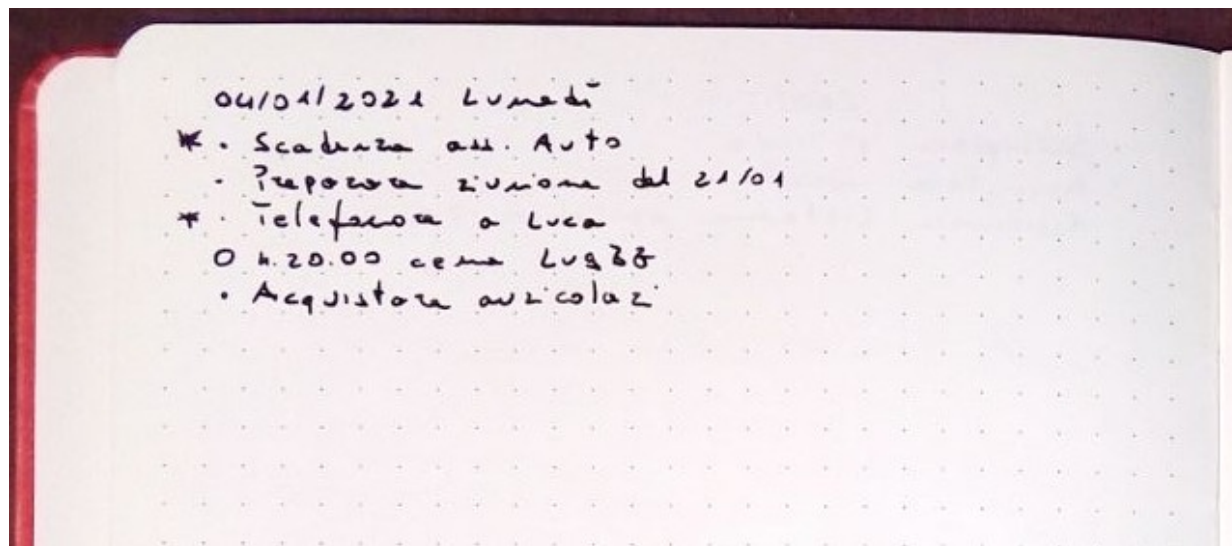 04/01/2021 Lunedì
* . Scadenza ass. Auto
. Preparare riunione del 21/01
* . Telefonare a Luca
O h.20.00 cena
. Acquistare auricolari